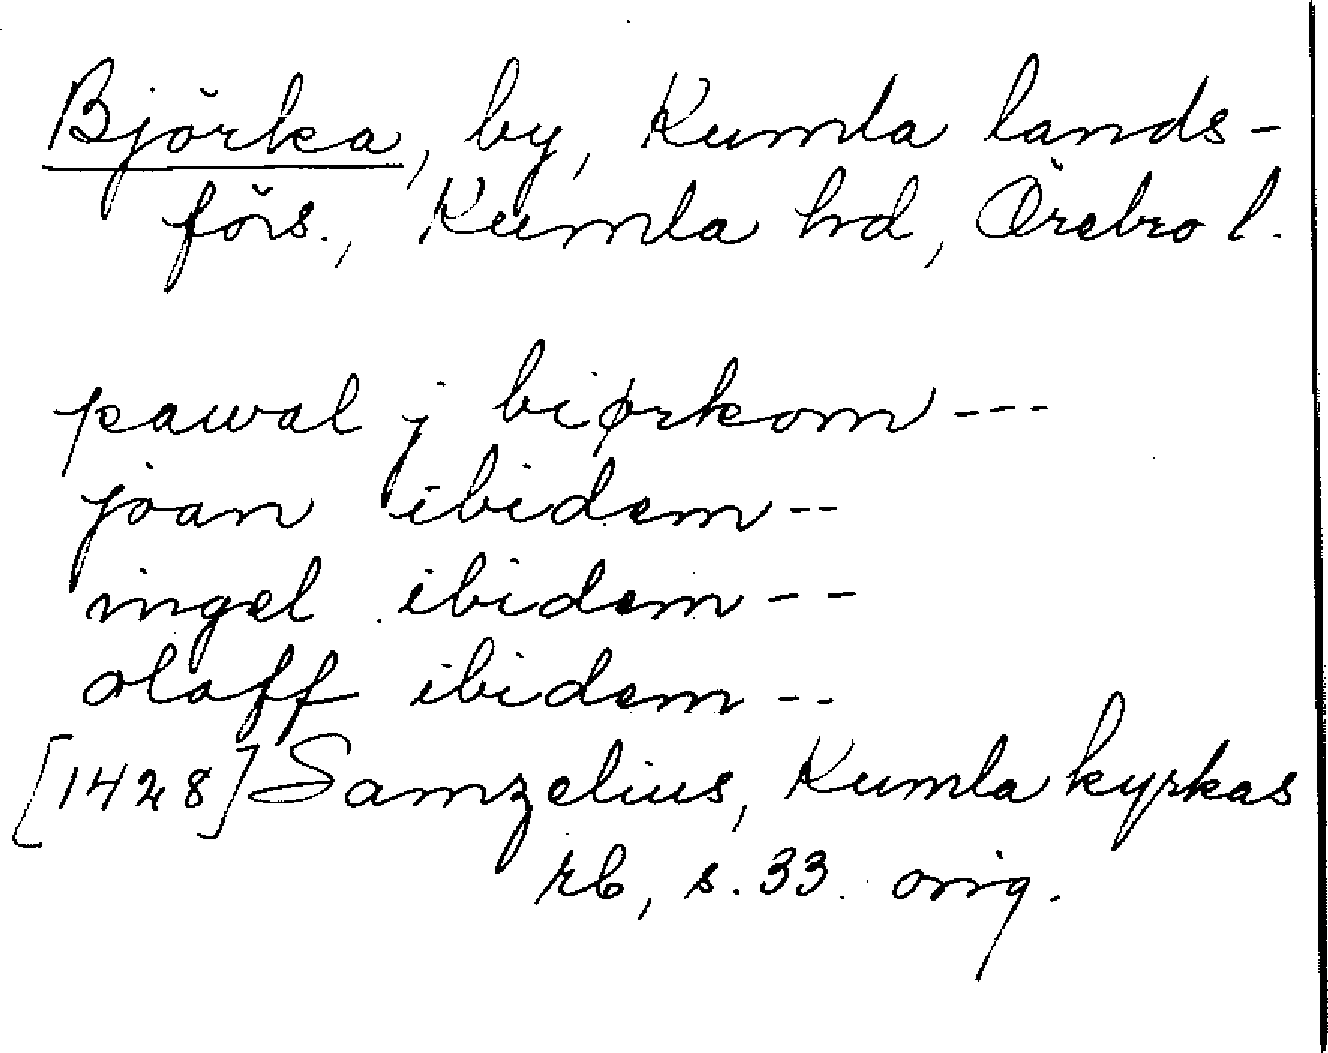 Björka, by, Kumla lands-
förs., Kumla hd, Örebro l.
pawal j biørkom ---
joan ibidem --
ingel ibidem ---
olaff ibidem --
[1428] Samzelius, Kumla kyrkas
rb, s. 33. orig.